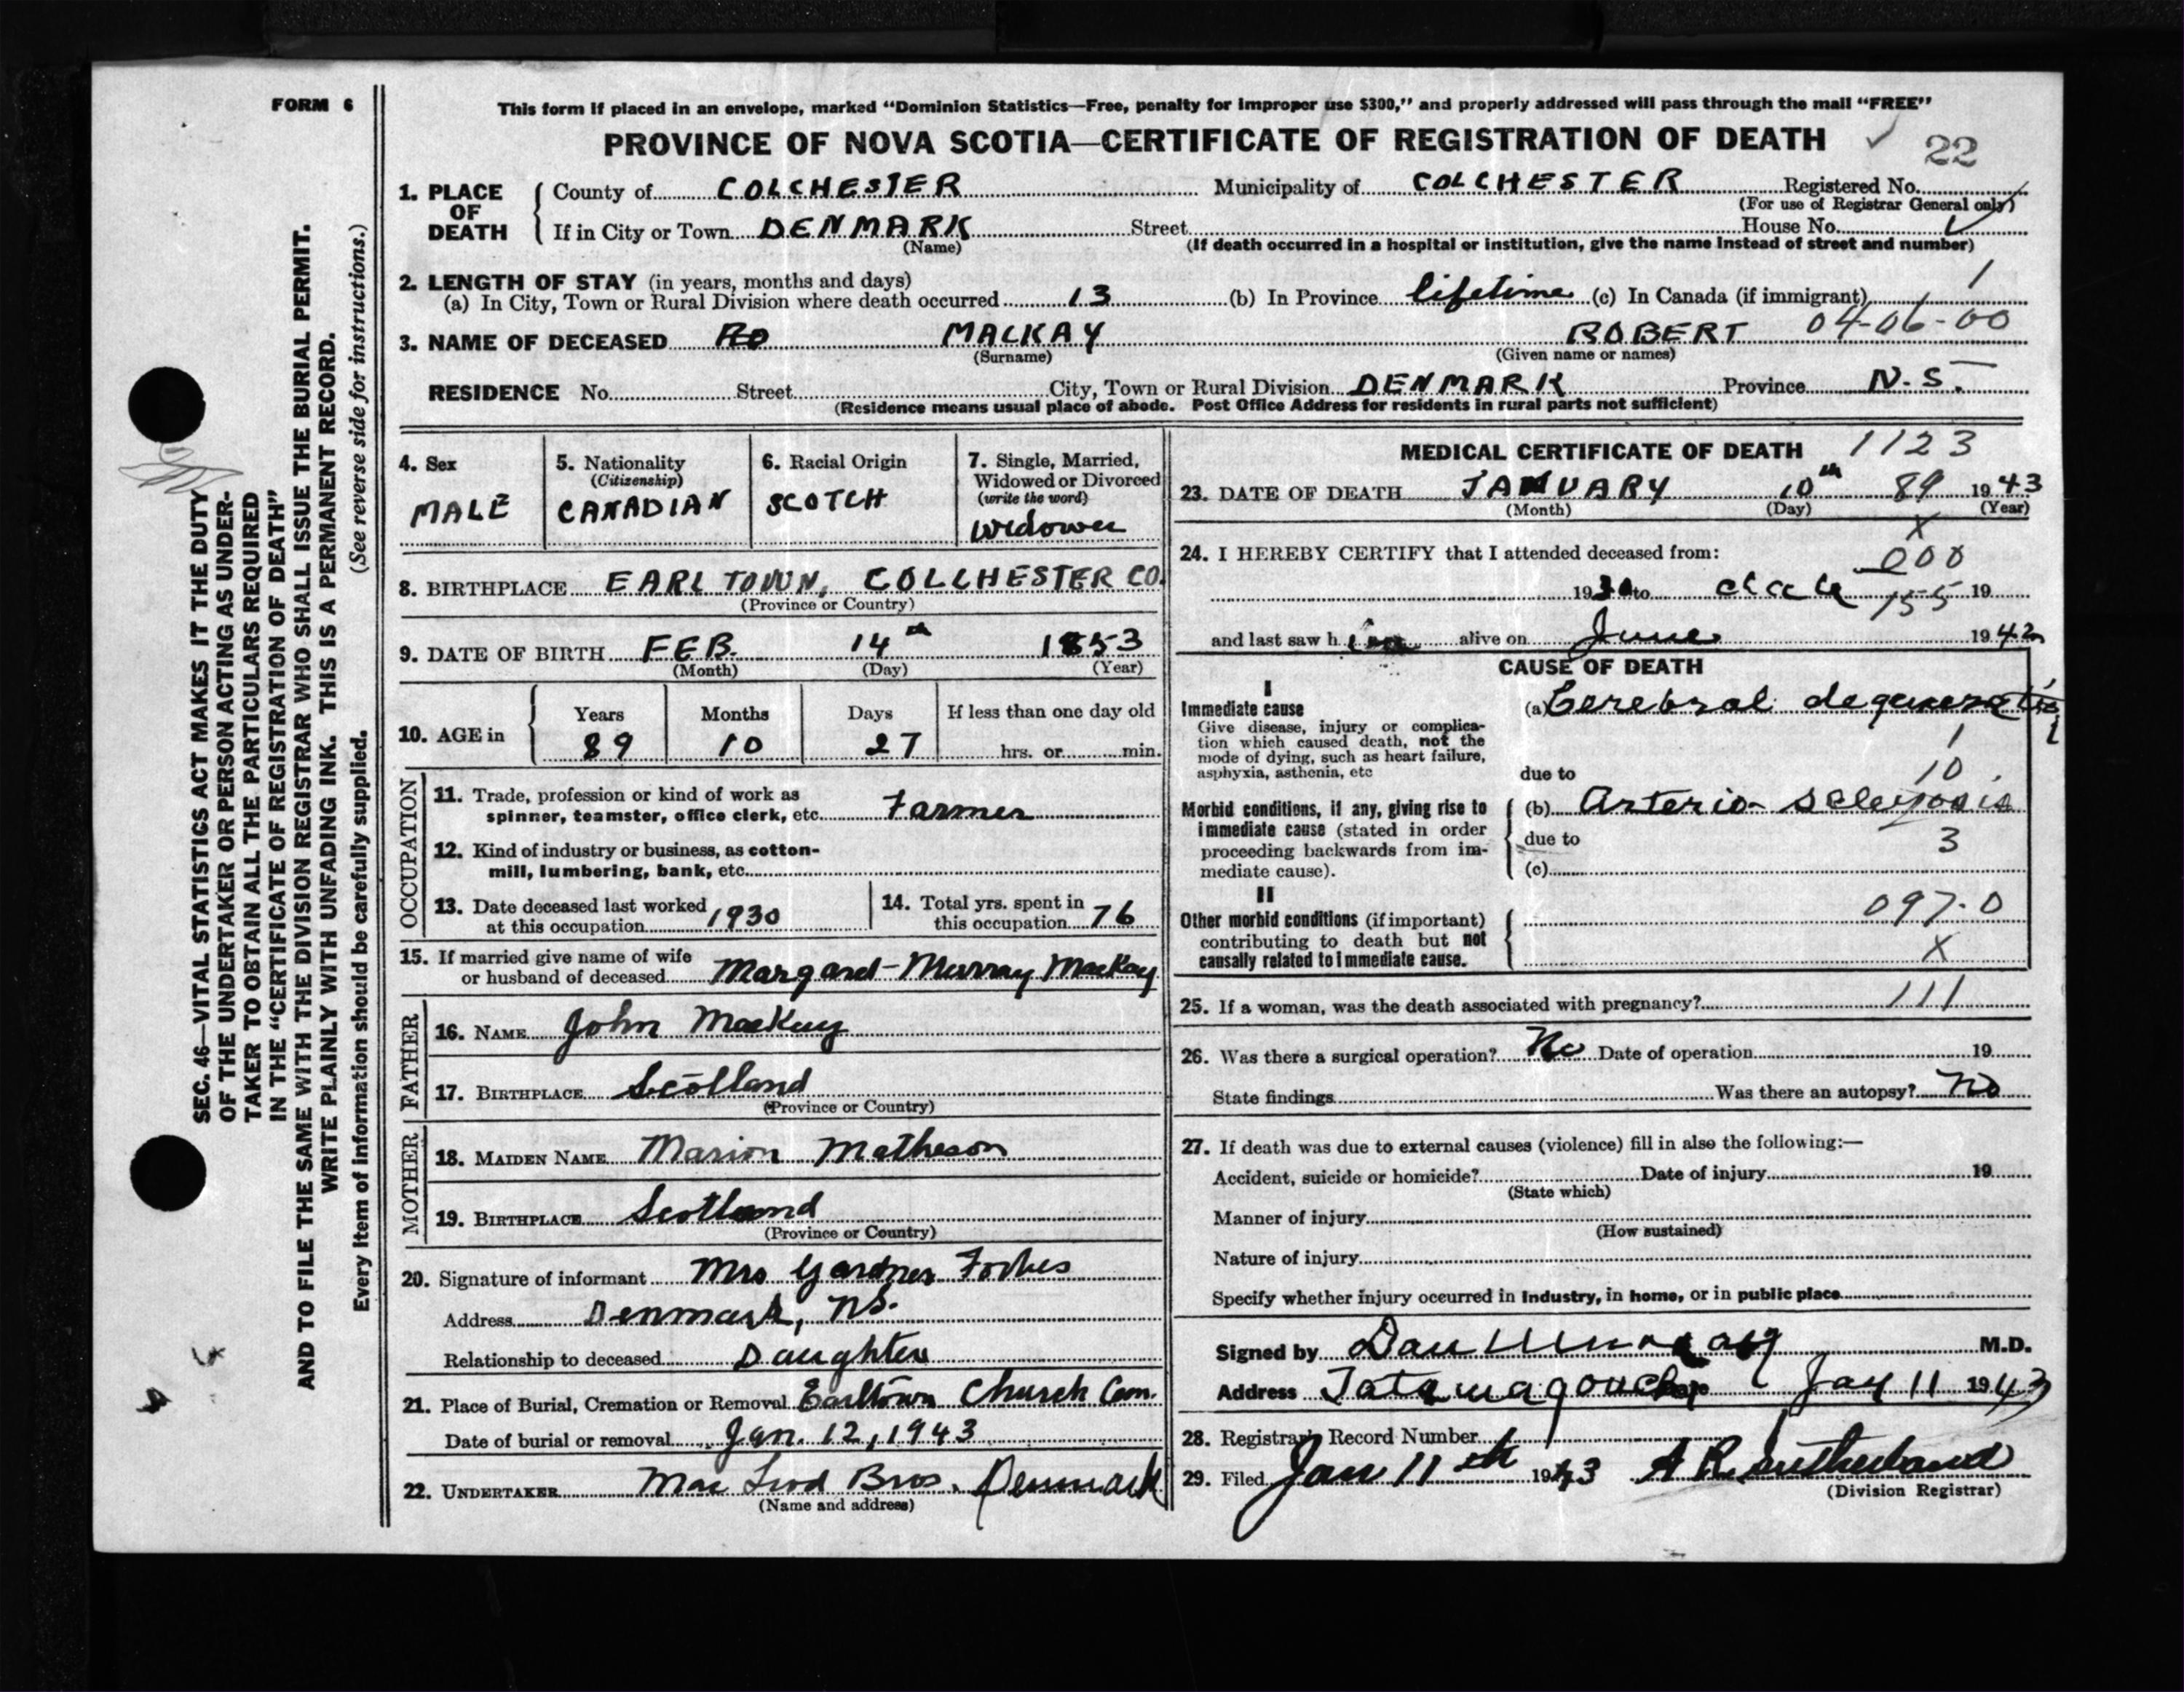 FORM 6
This form if placed in an envelope, marked "Dominion Statistics—Free, penalty for improper use $300," and properly addressed will pass through the mail "FREE"
PROVINCE OF NOVA SCOTIA—CERTIFICATE OF REGISTRATION OF DEATH
22
1. PLACE OF DEATH
County of COLCHESTER Municipality of COLCHESTER Registered No.
(For use of Registrar General only)
If in City or Town DENMARK Street House No.
(Name)
(If death occurred in a hospital or institution, give the name instead of street and number)
2. LENGTH OF STAY (in years, months and days) 1
(a) In City, Town or Rural Division where death occurred 13 (b) In Province lifetime (c) In Canada (if immigrant)
04-06-00
3. NAME OF DECEASED RO MACKAY ROBERT
(Surname) (Given name or names)
RESIDENCE No. Street City, Town or Rural Division DENMARK Province N.S.
(Residence means usual place of abode. Post Office Address for residents in rural parts not sufficient)
4. Sex
MALE
5. Nationality
(Citizenship)
CANADIAN
6. Racial Origin
SCOTCH
7. Single, Married,
Widowed or Divorced
(write the word)
Widower
8. BIRTHPLACE EARLTOWN, COLCHESTER CO.
(Province or Country)
9. DATE OF BIRTH FEB. 14th 1853
(Month) (Day) (Year)
10. AGE in
Years Months Days If less than one day old
89 10 27 hrs. or min.
OCCUPATION
11. Trade, profession or kind of work as
spinner, teamster, office clerk, etc. Farmer
12. Kind of industry or business, as cotton-
mill, lumbering, bank, etc.
13. Date deceased last worked
at this occupation 1930
14. Total yrs. spent in
this occupation 76
15. If married give name of wife
or husband of deceased Margaret Murray MacKay
FATHER
16. NAME John MacKay
17. BIRTHPLACE Scotland
(Province or Country)
MOTHER
18. MAIDEN NAME Marion Matheson
19. BIRTHPLACE Scotland
(Province or Country)
20. Signature of informant Mrs Gardner Forbes
Address Denmark, N.S.
Relationship to deceased Daughter
21. Place of Burial, Cremation or Removal Earltown Church Cem.
Date of burial or removal Jan. 12, 1943
22. UNDERTAKER MacLeod Bros. Denmark
(Name and address)
MEDICAL CERTIFICATE OF DEATH 1123
23. DATE OF DEATH JANUARY 10th 89 1943
(Month) (Day) (Year)
X
24. I HEREBY CERTIFY that I attended deceased from: 000
1930 to date 155 19
and last saw him alive on June 1942
CAUSE OF DEATH
I
Immediate cause
Give disease, injury or complica-
tion which caused death, not the
mode of dying, such as heart failure,
asphyxia, asthenia, etc
(a) Cerebral degeneration
1
due to 10
Morbid conditions, if any, giving rise to
immediate cause (stated in order
proceeding backwards from im-
mediate cause).
(b) Arterio-sclerosis
due to 3
(c)
II
Other morbid conditions (if important)
contributing to death but not
causally related to immediate cause.
097.0
X
25. If a woman, was the death associated with pregnancy? 111
26. Was there a surgical operation? No Date of operation 19
State findings Was there an autopsy? No
27. If death was due to external causes (violence) fill in also the following:—
Accident, suicide or homicide? Date of injury 19
(State which)
Manner of injury
(How sustained)
Nature of injury
Specify whether injury occurred in industry, in home, or in public place
Signed by Dan Murray M.D.
Address Tatamagouche Jan 11 1943
28. Registrar's Record Number
29. Filed Jan 11th 1943 A R Sutherland
(Division Registrar)
SEC. 46—VITAL STATISTICS ACT MAKES IT THE DUTY
OF THE UNDERTAKER OR PERSON ACTING AS UNDER-
TAKER TO OBTAIN ALL THE PARTICULARS REQUIRED
IN THE "CERTIFICATE OF REGISTRATION OF DEATH"
AND TO FILE THE SAME WITH THE DIVISION REGISTRAR WHO SHALL ISSUE THE BURIAL PERMIT.
WRITE PLAINLY WITH UNFADING INK. THIS IS A PERMANENT RECORD.
Every item of information should be carefully supplied. (See reverse side for instructions.)